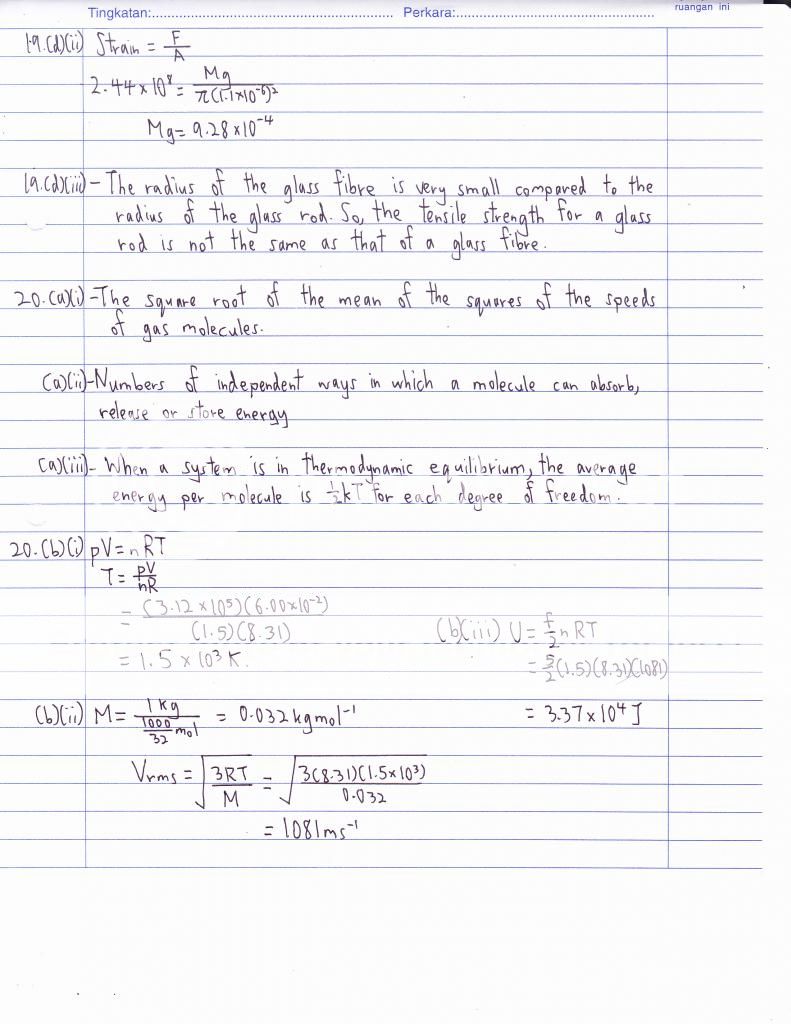 Tingkatan:........................ Perkara:........................ ruangan ini
19.(d)(ii) Strain = F/A
2.44 × 10⁸ = Mg/π(1.1×10⁻⁶)²
Mg = 9.28 × 10⁻⁴
19.(d)(iii) – The radius of the glass fibre is very small compared to the
radius of the glass rod. So, the tensile strength for a glass
rod is not the same as that of a glass fibre.
20.(a)(i) – The square root of the mean of the squares of the speeds
of gas molecules.
(a)(ii) – Numbers of independent ways in which a molecule can absorb,
release or store energy
(a)(iii) – When a system is in thermodynamic equilibrium, the average
energy per molecule is ½kT for each degree of freedom.
20.(b)(i) pV = nRT
T = pV/nR
= (3.12 × 10⁵)(6.00 × 10⁻²)/(1.5)(8.31)
= 1.5 × 10³ K.
(b)(iii) U = f/2 nRT
= 5/2 (1.5)(8.31)(1081)
= 3.37 × 10⁴ J
(b)(ii) M = 1 kg/(1000/32 mol) = 0.032 kg mol⁻¹
Vrms = √(3RT/M) = √(3(8.31)(1.5×10³)/0.032)
= 1081 ms⁻¹